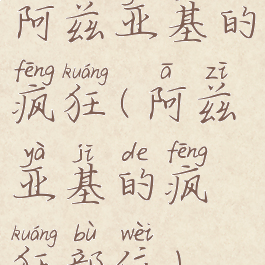 阿兹亚基的
fēng kuáng ā zī
疯狂(阿兹
yà jī de fēng
亚基的疯
kuáng bù wèi
狂部位)